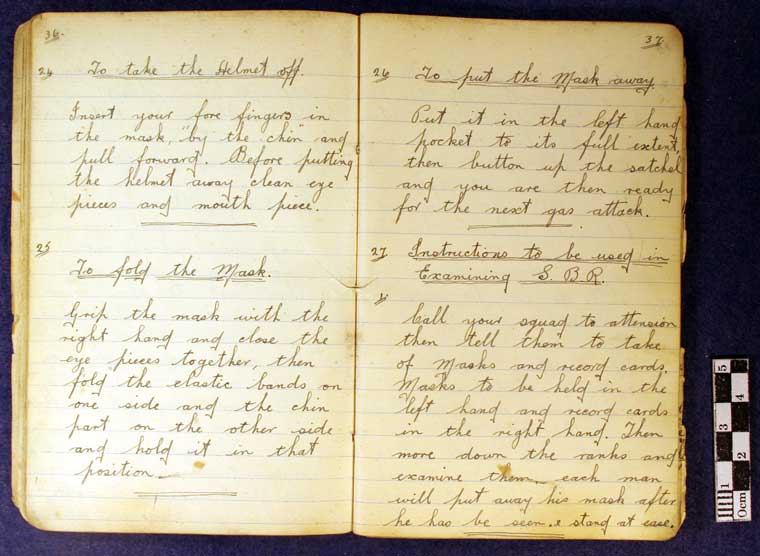 36.
24 To take the Helmet off.
Insert your fore fingers in
the mask, "by the chin" and
pull forward. Before putting
the helmet away clean eye
pieces and mouth piece.
25
To fold the Mask.
Grip the mask with the
right hand and close the
eye pieces together, then
fold the elastic bands on
one side and the chin
part on the other side
and hold it in that
position.
37.
26 To put the Mask away.
Put it in the left hand
pocket to its full extent,
then button up the satchel
and you are then ready
for the next gas attack.
27 Instructions to be used in
Examining S. B. R.
1.
Call your squad to attension
then tell them to take
of Masks and record cards.
Masks to be held in the
left hand and record cards
in the right hand. Then
move down the ranks and
examine them each man
will put away his mask after
he has be seen. & stand at ease.
0cm 1 2 3 4 5